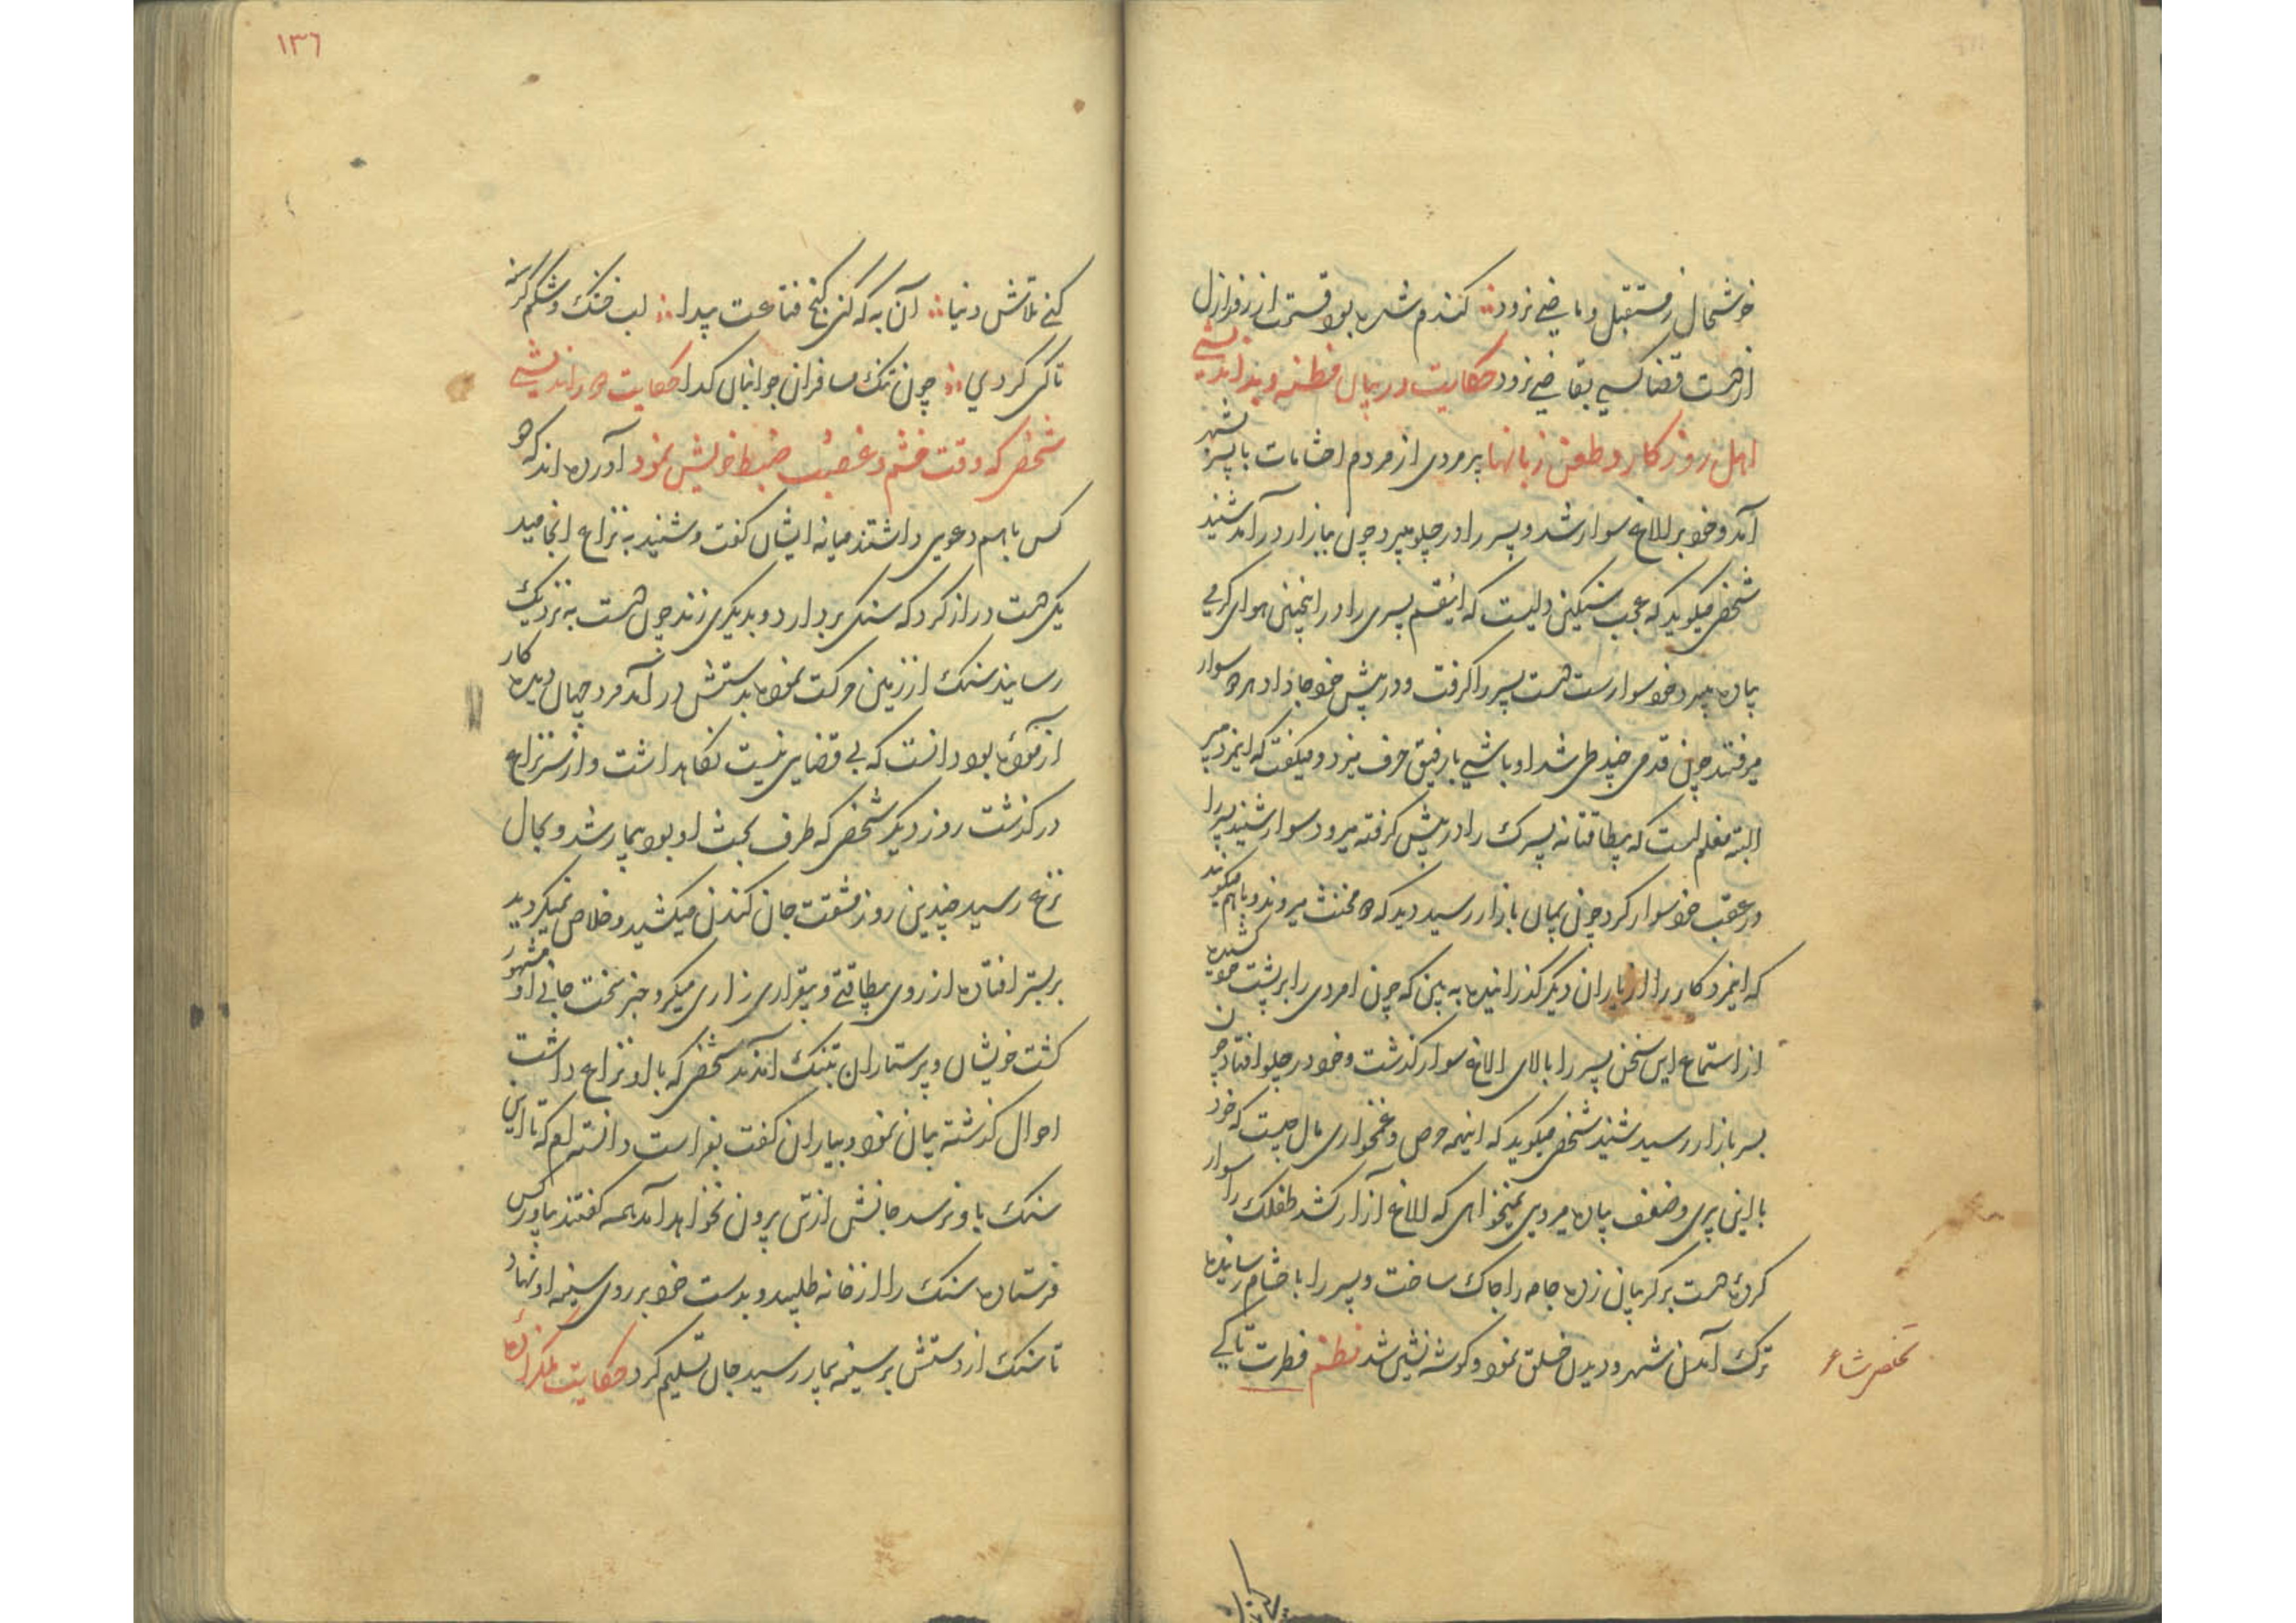 خوشحال ز مستقبل و ماضی نرود ؞ کندم شده بود قسمت از روز ازل
از دست قضا کسی بقاضی نرود حکایت در بیان فطنه و بداندیشی
اهل روزکار و طعن زبانها پیرمردی از مردم احشامات با پسر بشهر
آمد و خود بر الاغ سوار شد و پسر را در جلو میبرد چون ببازار درآمد شنید
شخصی میکوید که عجب سنکین دلیست که اینقسم پسری را در اینچنین هوای کرمی
پیاده میبرد و خود سوارست دست پسر را کرفت و در پیش خود جا داد هر دو سوار
میرفتند چون قدمی چند طی شد اوباشی با رفیق حرف میزد و میکفت که اینمرد پیر
البته مغلم است که بیطاقتانه پسرک را در پیش کرفته میرود سوار شنید پسر را
در عقب خود سوار کرد چون بمیان بازار رسید دید که دو مخنث میروند و باهم میکویند
که اینمرد کار را از یاران دیکر کذرانیده به بین که چون امردی را بر پشت خود کشیده
از استماع این سخن پسر را بالای الاغ سوار کذاشت و خود در جلو افتاد چون
بسر بازار رسید شنید شخصی میکوید که اینهمه حرص و غمخواری مال چیست که خود
با این پیری و ضعف پیاده میروی نمیخواهی که الاغ آزار کشد طفلک را سوار
کردهٔ دست بر کریبان زده جامه را چاک ساخت و پسر را باحشام رسانیده
ترک آمدن شهر و دیدن خلق نمود و کوشه نشین شد نظم فطرت تا کی
تخلص شاعر
١٣٦
کنی تلاش دنیا ؞ آن به که کنی کنج قناعت پیدا ؞ لب خشک و شکم کرسنه
تا کی کردی ؞ چون تنک مسافران جوانبان کدا حکایت دوراندیشی
شخصی که وقت خشم و غضب ضبط خویش نمود آورده اند که دو
کس باهم دعوی داشتند میانه ایشان کفت و شنید به نزاع انجامید
یکی دست دراز کرد که سنکی بردارد و بدیکری زند چون دست به نزدیک
رسانید سنک از زمین حرکت نموده بدستش درآمد مرد جهان دیده کار
آزمودهٔ بود دانست که بی قضایی نیست نکاهداشت و از سر نزاع
درکذشت روز دیکر شخصی که طرف بحث او بود بیمار شد و بحال
نزع رسید چندین روز مشقت جان کندن میکشید و خلاص نمیکردید
بر بستر افتاده از روی بیطاقتی و بیقراری زاری میکرد خبر سخت جانی او مشهور
کشت خویشان و پرستاران بتنک آمدند شخصی که با او نزاع داشت
احوال کذشته بیان نمود و بیاران کفت بفراست دانسته ام که تا این
سنک باو نرسد جانش از تن بیرون نخواهد آمد همه کفتند بیاور کس
فرستاده سنک را از خانه طلبید و بدست خود بر روی سینه او نهاد
تا سنک از دستش بر سینه بیمار رسید جان تسلیم کرد حکایت